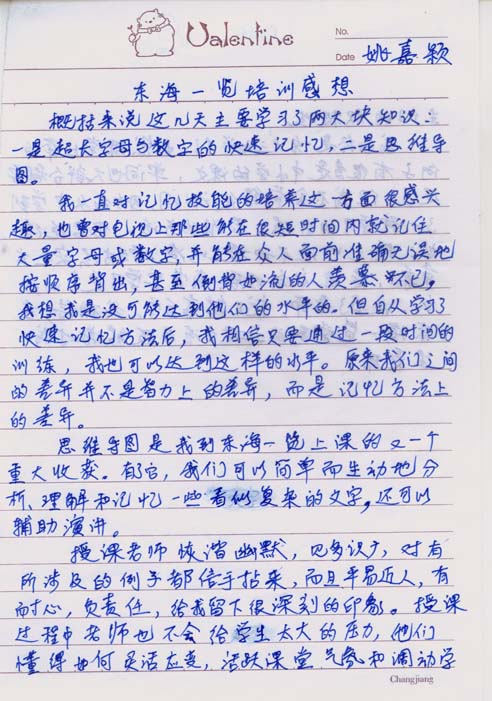 Valentine
No.
Date 姚嘉颖
东海一览培训感想
概括来说这几天主要学习了两大块知识:
一是超长字母与数字的快速记忆,二是思维导
图。
我一直对记忆技能的培养这一方面很感兴
趣,也曾对电视上那些能在很短时间内就记住
大量字母或数字,并能在众人面前准确无误地
按顺序背出,甚至倒背如流的人羡慕不已。
我想我是没可能达到他们的水平的。但自从学习了
快速记忆方法后,我相信只要通过一段时间的
训练,我也可以达到这样的水平。原来我们之间
的差异并不是智力上的差异,而是记忆方法上
的差异。
思维导图是我到东海一览上课的又一个
重大收获。有了它,我们可以简单而生动地分
析、理解和记忆一些看似复杂的文字,还可以
辅助演讲。
授课老师诙谐幽默,见多识广,对有
所涉及的例子都信手拈来,而且平易近人,有
耐心,负责任,给我留下很深刻的印象。授课
过程中老师也不会给学生太大的压力,他们
懂得如何灵活应变,活跃课堂气氛和调动学
Changjiang